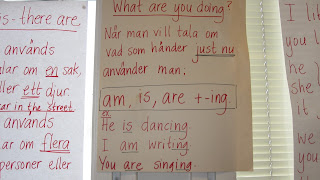 is - there are
används
alar om en sak,
ller ett djur.
ar in the street
används
ar om flera
personer eller
What are you doing?
När man vill tala om
vad som händer just nu
använder man:
am, is, are + -ing.
ex
He is dancing.
I am writing.
You are singing
I li
you l
he
she
it
we
you
the